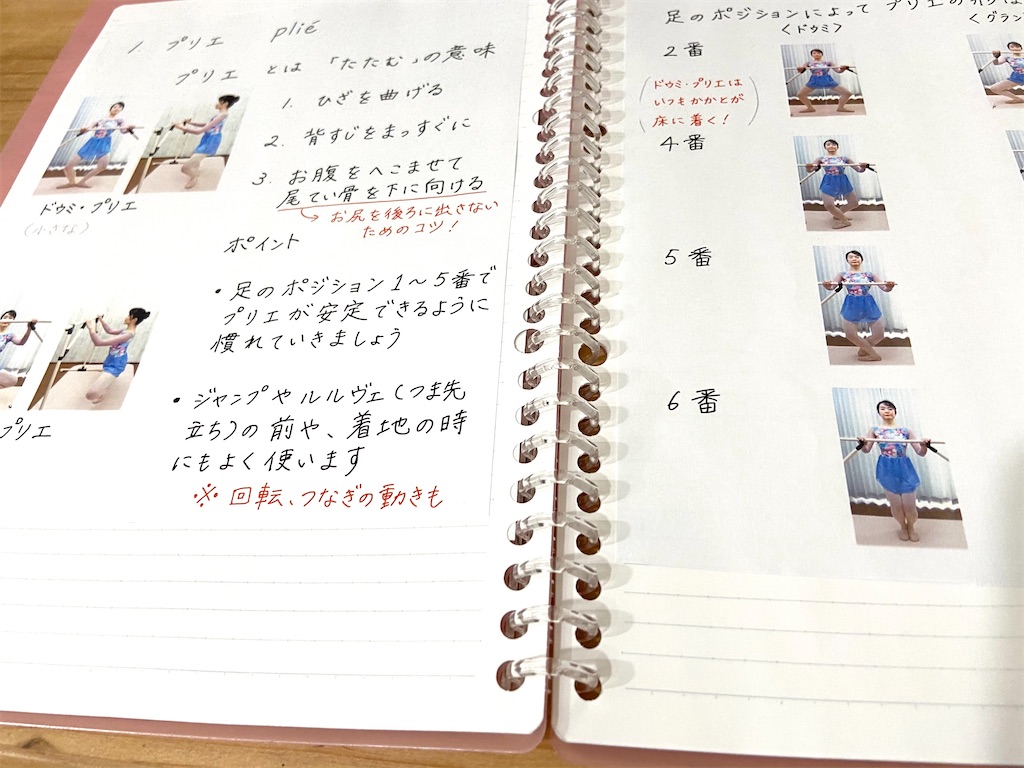 1. プリエ plié
プリエ とは 「たたむ」の意味
1. ひざを曲げる
2. 背すじをまっすぐに
3. お腹をへこませて
尾てい骨を下に向ける
→ お尻を後ろに出さない
ためのコツ!
ドゥミ・プリエ
(小さな)
ポイント
・足のポジション1〜5番で
プリエが安定できるように
慣れていきましょう
プリエ
・ジャンプやルルヴェ(つま先
立ち)の前や、着地の時
にもよく使います
※ 回転、つなぎの動きも
足のポジションによって プリエの
<ドゥミ>
<グラン
2番
(ドゥミ・プリエは
いつもかかとが
床に着く!)
4番
5番
6番